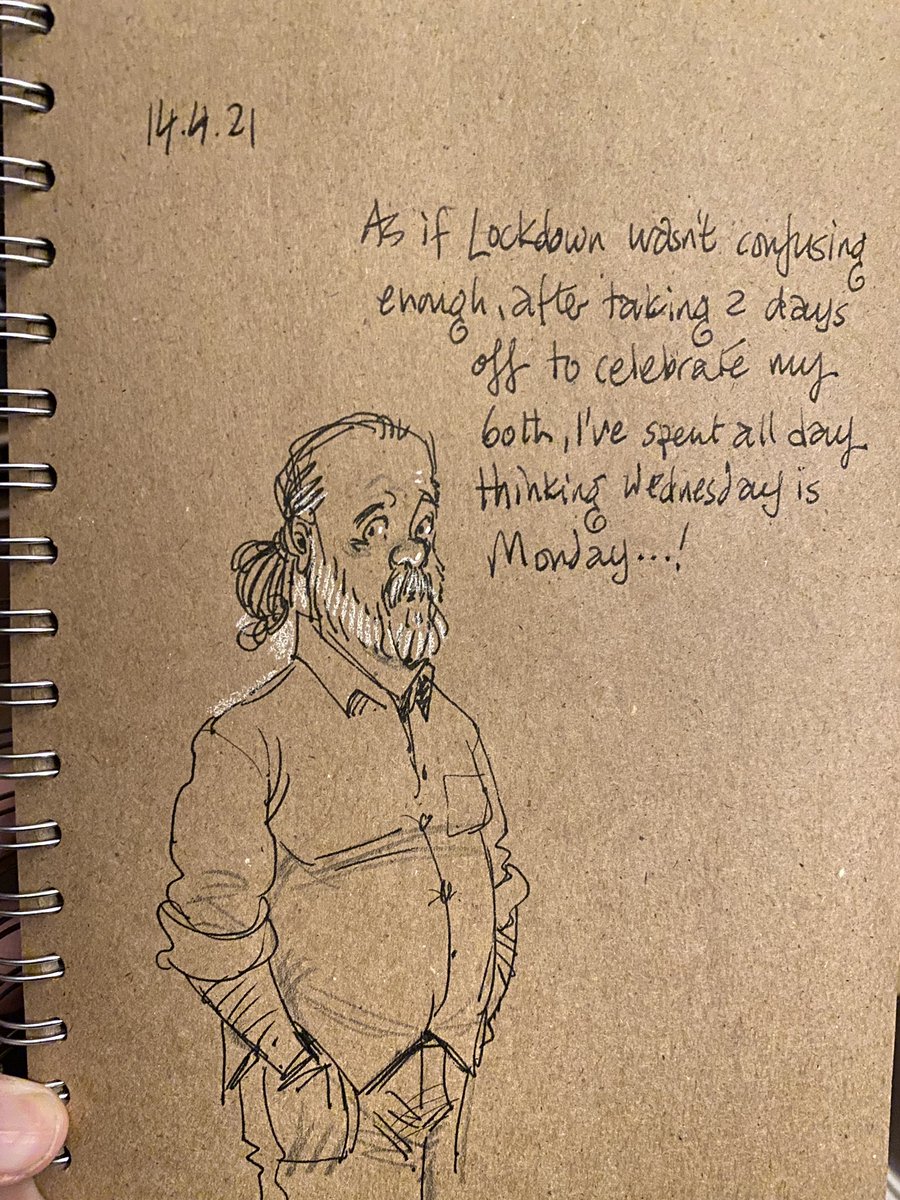 14.4.21
As if Lockdown wasn't confusing
enough, after taking 2 days
off to celebrate my
60th, I've spent all day
thinking Wednesday is
Monday...!